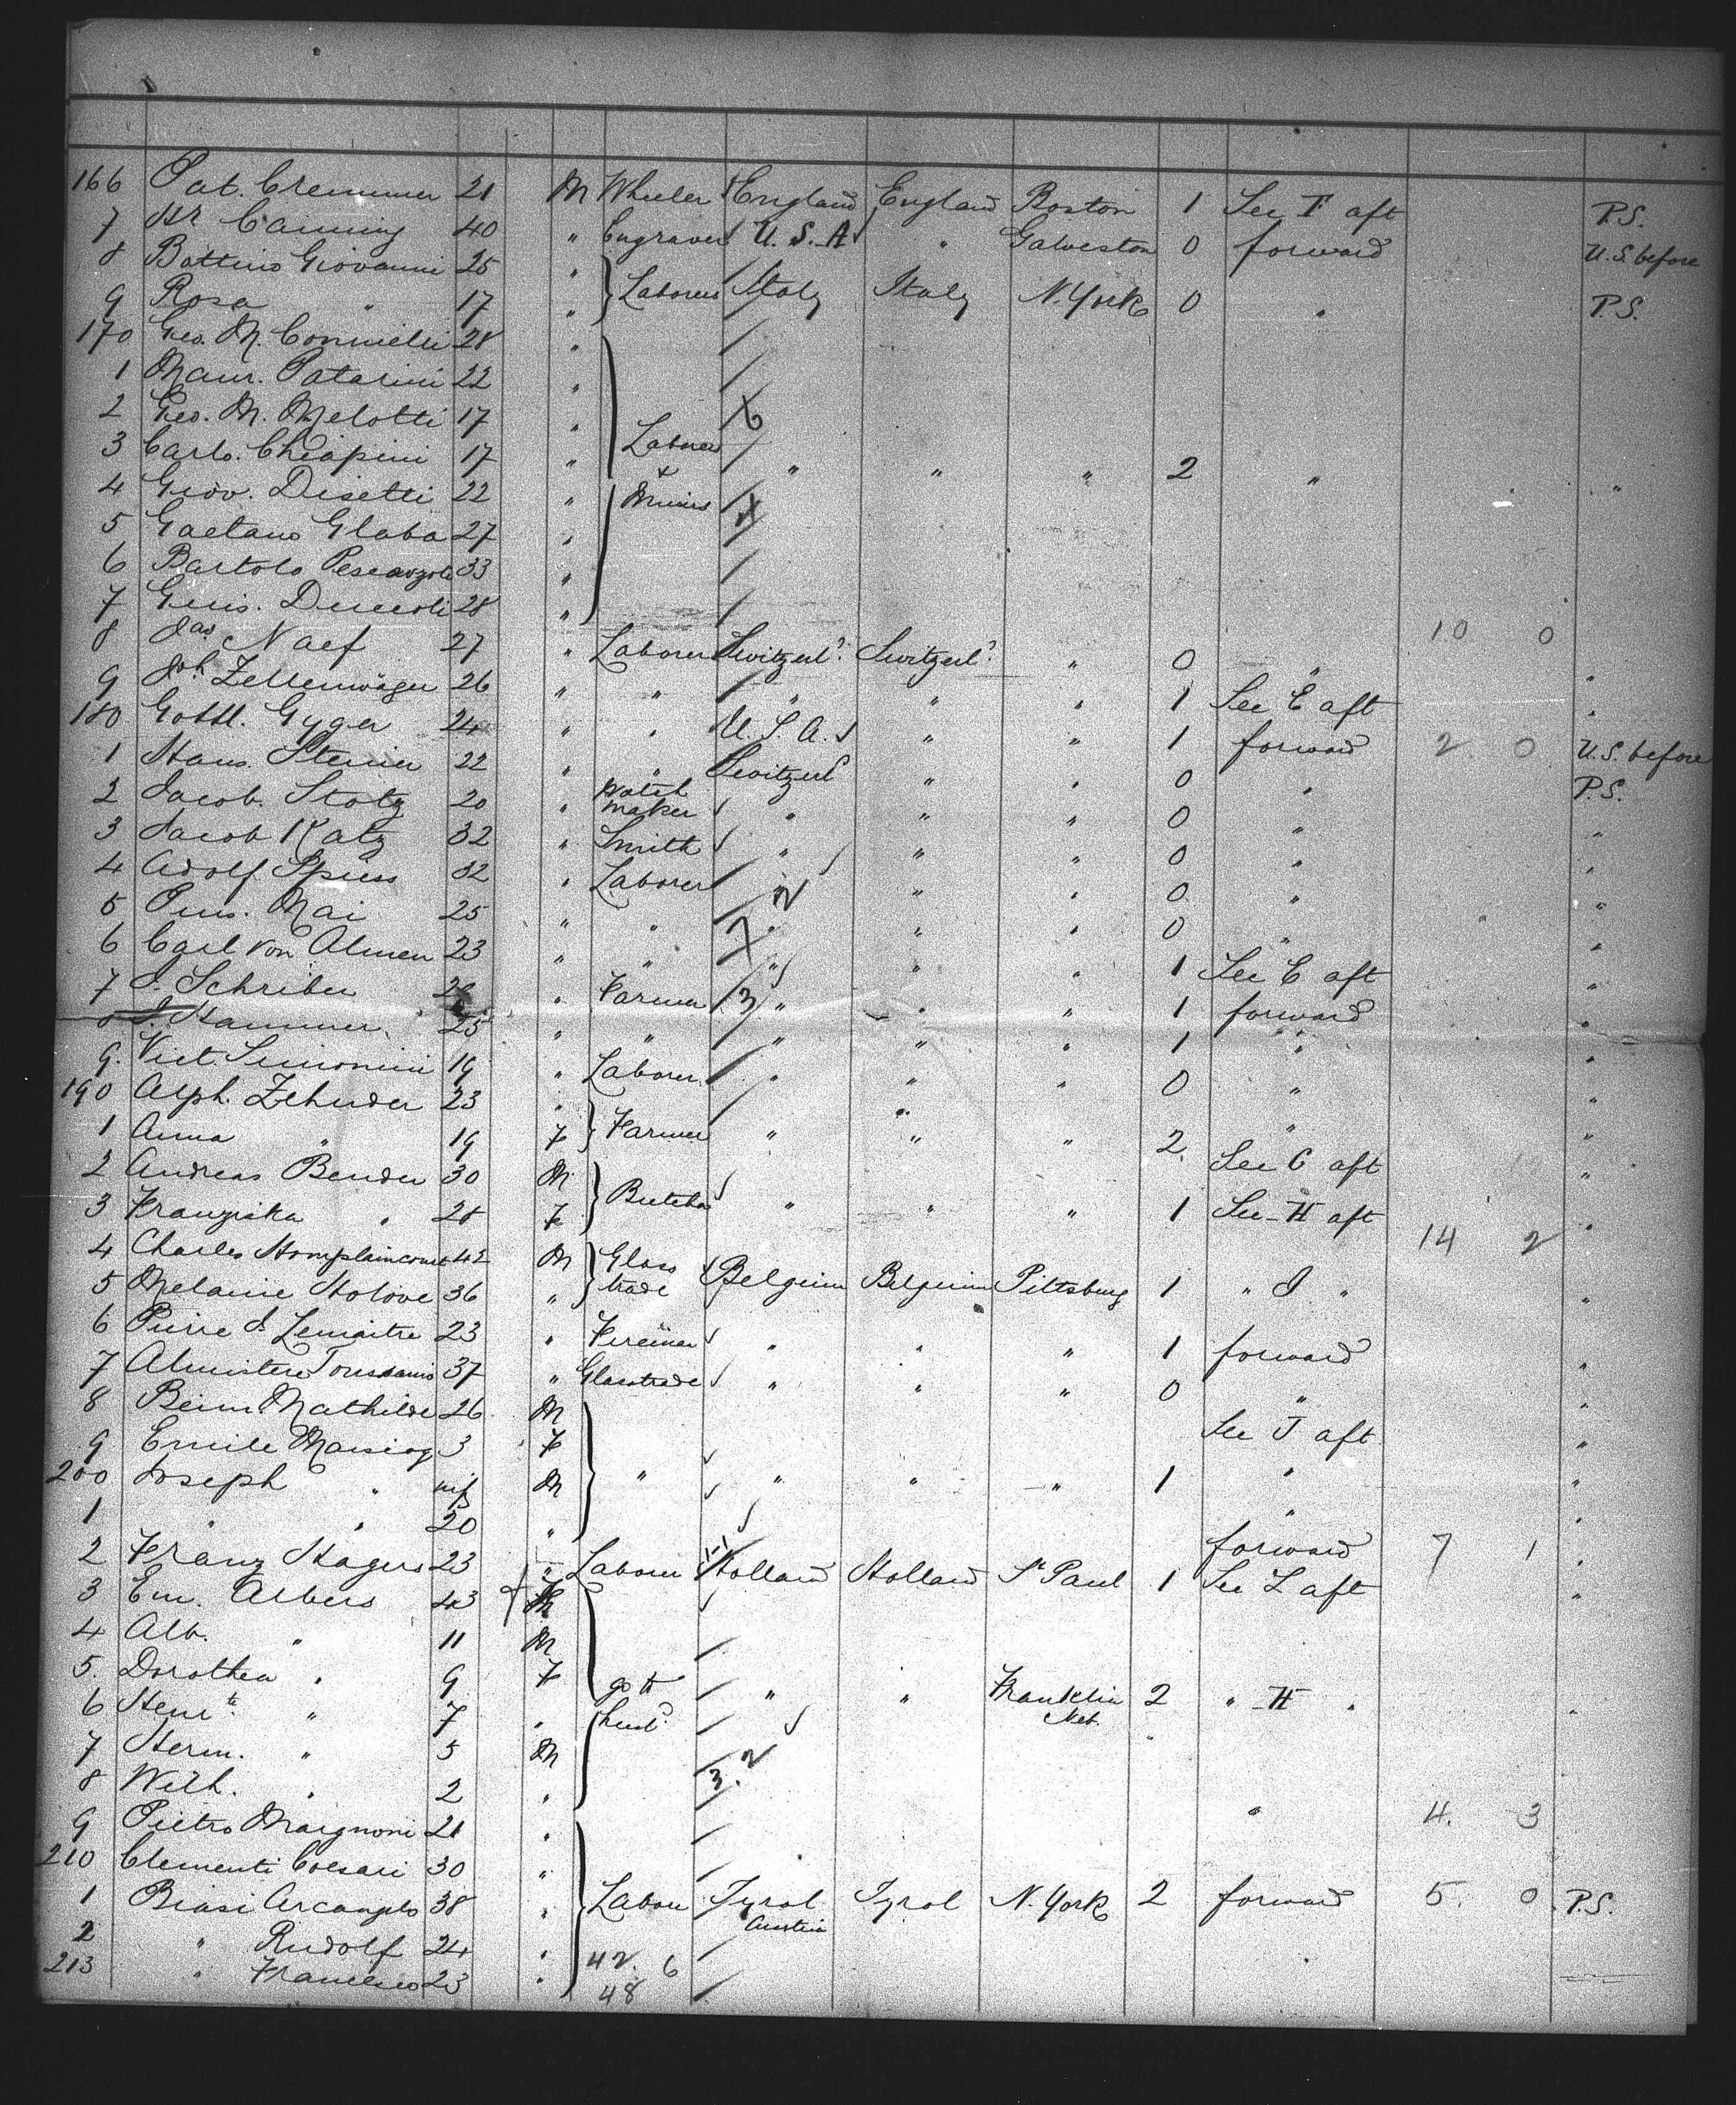 166 Pat. Cremmer 21 M Wheeler England England Boston 1 Sec F aft P.S.
7 Hr Canning 40 " Engraver U.S.A " Galveston 0 forward U.S. before
8 Bottino Giovanni 25 "
9 Rosa " 17 " Laborers Italy Italy N. York 0 " P.S.
170 Geo. M. 28 "
1 Maur. Patarini 22 "
2 Geo. M. Melotti 17 "
3 Carlo. Chiapini 17 " Laborers " " " 2 " "
4 Giov. Disetti 22 " +
5 Gaetano Glaba 27 "
6 Bartolo 33 "
7 28 "
8 Jas Naef 27 " Laborer Switzerld. Switzerld. " 0 " 10 0
9 Joh. Zellenwäger 26 " " " " " 1 Sec E aft "
180 Gottl. Gyger 24 " " U.S.A. " " 1 forward 2 0 U.S. before
1 Hans. Steiner 22 " " Switzerld " " 0 " P.S.
2 Jacob. Stotz 20 " Watch maker " " " 0 " "
3 Jacob Katz 32 " Smith " " " 0 " "
4 Adolf Spiess 32 " Laborer " " " 0 " "
5 Mai 25 " " " " " 0 " "
6 Carl von Almen 23 " " " " " 1 Sec E aft "
7 J. Schriber " Farmer 3 " " " 1 forward "
8 J. Hammer 25 " " " " " 1 " "
9. Vict. Simonini 19 " Laborer " " " 0 " "
190 Alph. Zehnder 23 "
1 Anna " 19 F Farmer " " " 2 " "
2 Andreas Bender 30 M Sec G aft "
3 Franziska " 28 F Butcher " " " 1 Sec H aft 14 2 "
4 Charles 42 M Glass
5 Melanie Holove 36 " trade Belgium Belgium Pittsburg 1 " J " "
6 Pierre J. Lemaitre 23 " " " " 1 forward "
7 37 " Glasstrade " " " 0 " "
8 Mathilde 26 M Sec J aft "
9 Emile 3 F "
200 Joseph " inf M " " " " 1 " "
1 " " 20 " forward 7 1 "
2 Franz Hagers 23 " Laborer Holland Holland St Paul 1 Sec L aft "
3 Em. Albers 43
4 Alb. " 11 M
5. Dorothea " 9 F
6 Henrte " 7 " go to husbd. " " Franklin Neb. 2 " H " "
7 Herm. " 5 M
8 Wilh. " 2 " 3. 2 " 4. 3
9 Pietro Maignoni 21 "
210 Clementi Coesari 30 "
1 Biasi Arcangelo 38 " Labour Tyrol Austria Tyrol N. York 2 forward 5. 0 P.S.
2 " Rudolf 24 " 42. 6
213 " Francesco 23 " 48